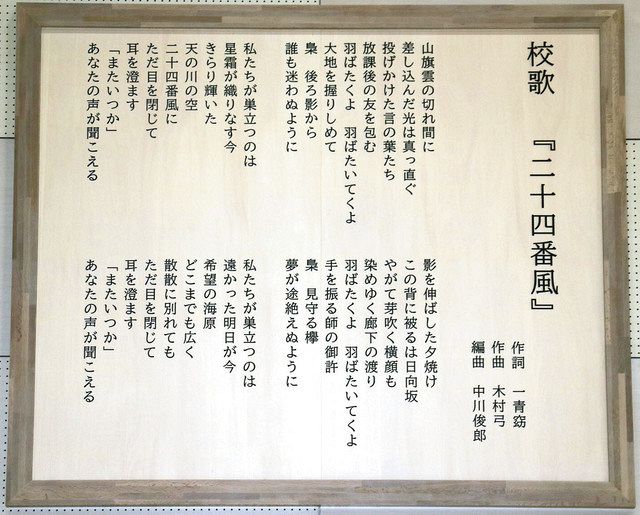 校歌 『二十四番風』
作詞 一青窈
作曲 木村弓
編曲 中川俊郎
山旗雲の切れ間に
差し込んだ光は真っ直ぐ
投げかけた言の葉たち
放課後の友を包む
羽ばたくよ 羽ばたいてくよ
大地を握りしめて
梟 後ろ影から
誰も迷わぬように
私たちが巣立つのは
星霜が織りなす今
きらり輝いた
天の川の空
二十四番風に
ただ目を閉じて
耳を澄ます
「またいつか」
あなたの声が聞こえる
影を伸ばした夕焼け
この背に被るは日向坂
やがて芽吹く横顔も
染めゆく廊下の渡り
羽ばたくよ 羽ばたいてくよ
手を振る師の御許
梟 見守る欅
夢が途絶えぬように
私たちが巣立つのは
遠かった明日が今
希望の海原
どこまでも広く
散散に別れても
ただ目を閉じて
耳を澄ます
「またいつか」
あなたの声が聞こえる